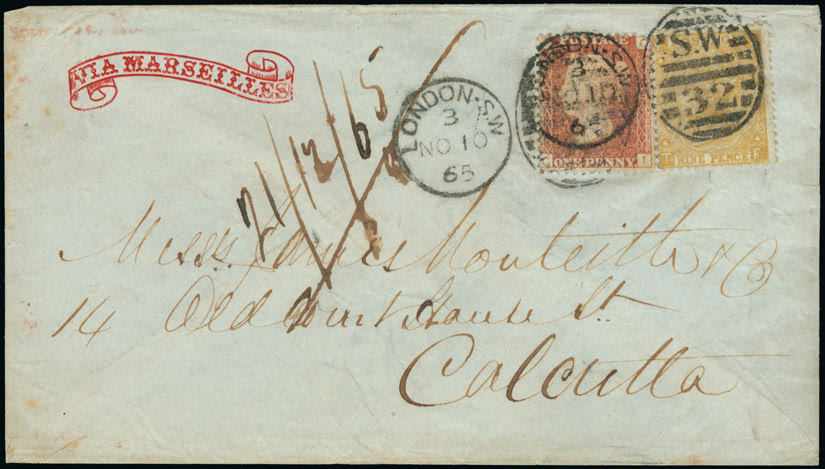 VIA MARSEILLES
21/12/65
LONDON·S.W
3
NO 10
65
LONDON·S.W
3
NO 10
65
ONE PENNY
S.W
32
NINE PENCE
Messrs James Monteith & Co
14 Old Court House St
Calcutta